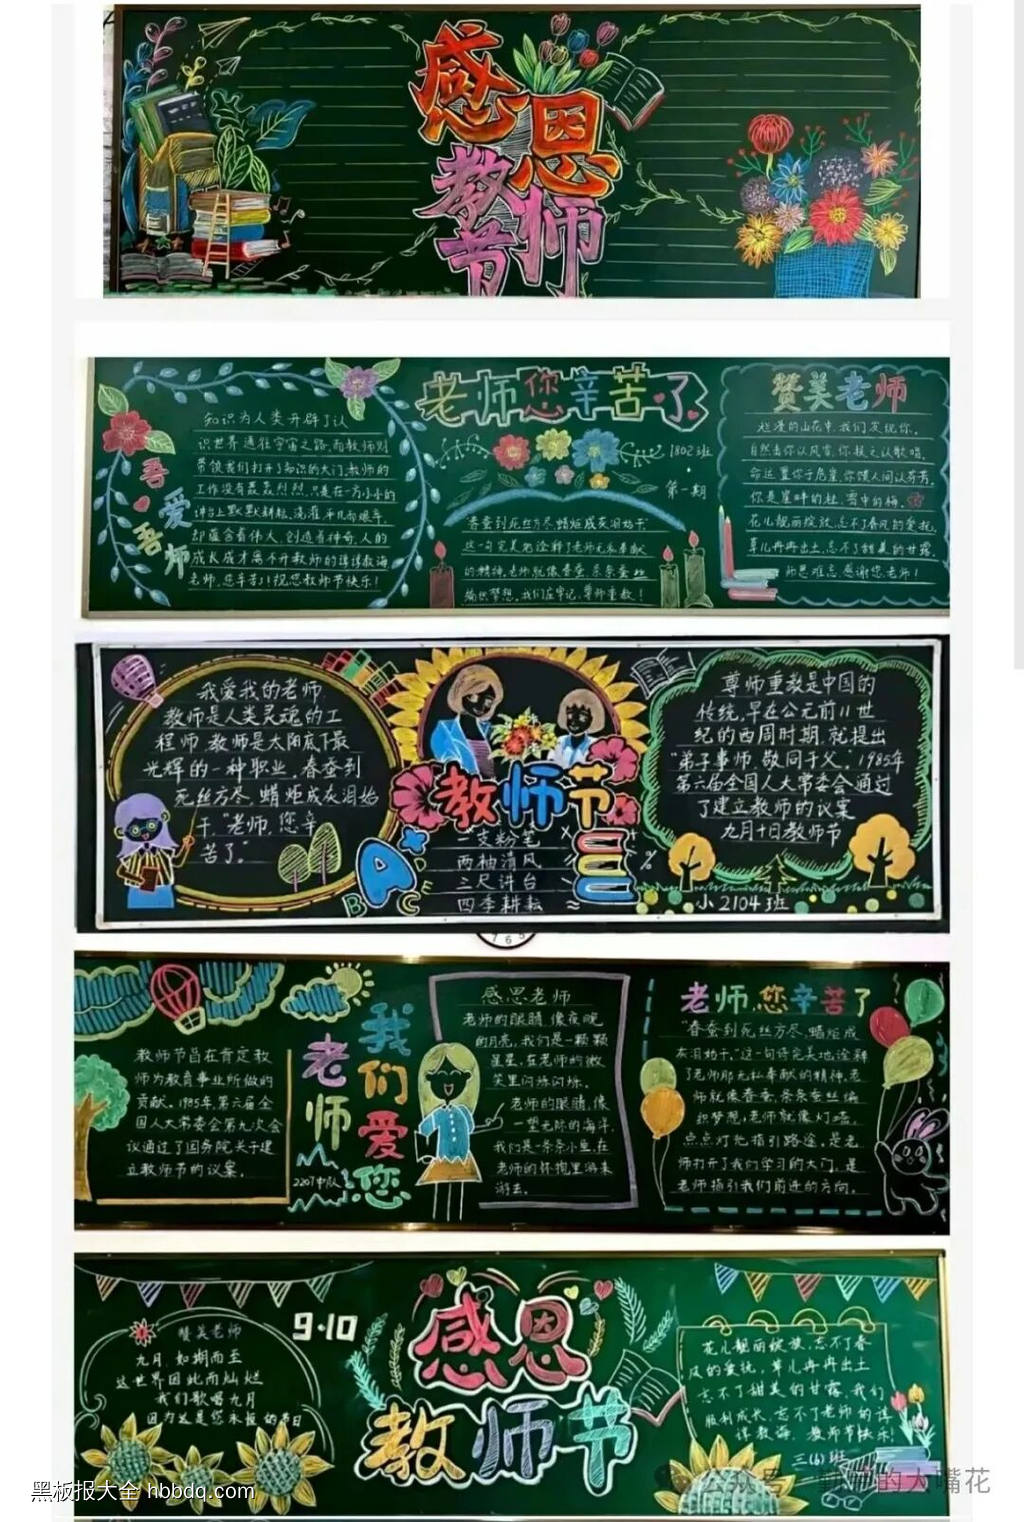 感恩
教师
节
吾爱吾师
知识为人类开辟了认
识世界通往宇宙之路,而教师则
带领我们打开了知识的大门,教师的
工作没有轰轰烈烈,只是在一方小小的
讲台上默默耕耘、浇灌,平凡而艰辛,
却蕴含着伟大,创造着神奇,人的
成长成才离不开教师的谆谆教诲
老师,您辛苦了!祝您教师节快乐!
老师您辛苦了
1802班
第一期
春蚕到死丝方尽,蜡炬成灰泪始干
这一句完美地诠释了老师无私奉献
的精神,老师就像春蚕,条条蚕丝
编织梦想,我们应牢记,尊师重教!
赞美老师
烂漫的山花中,我们发现你。
自然击你以风雪,你报之以歌唱。
命运置你于危崖,你馈人间以芬芳。
你是崖畔的桂,雪中的梅。
花儿靓丽绽放,忘不了春风的爱抚,
草儿冉冉出土,忘不了甜美的甘露,
师恩难忘,感谢您老师!
我爱我的老师
教师是人类灵魂的工
程师,教师是太阳底下最
光辉的一种职业,春蚕到
死丝方尽,蜡炬成灰泪始
干,"老师,您辛
苦了。"
教师节
一支粉笔
两袖清风
三尺讲台
四季耕耘
A
B
C
D
E
尊师重教是中国的
传统,早在公元前11世
纪的西周时期,就提出
"弟子事师,敬同于父,1985年
第六届全国人大常委会通过
了建立教师的议案
九月十日教师节
小2104班
7 6 5
教师节旨在肯定教
师为教育事业所做的
贡献。1985年,第六届全
国人大常委会第九次会
议通过了国务院关于建
立教师节的议案。
老师
我们爱您
2207中队
感恩老师
老师的眼睛,像夜晚
的月亮,我们是一颗颗
星星,在老师的微
笑里闪烁闪烁。
老师的眼睛,像
一望无际的海洋,
我们是一条条小鱼,在
老师的怀抱里游来
游去。
老师,您辛苦了
"春蚕到死丝方尽,蜡炬成
灰泪始干。"这一句诗完美地诠释
了老师那无私奉献的精神,老
师就像春蚕,条条蚕丝编
织梦想,老师就像灯塔,
点点灯光指引路途,是老
师打开了我们学习的大门,是
老师指引我们前进的方向。
赞美老师
九月,如期而至
这世界因此而灿烂
我们歌唱九月
因为这是您永恒的节日
9·10
感恩
教师节
花儿靓丽绽放,忘不了春
风的爱抚,草儿冉冉出土
忘不了甜美的甘露,我们
顺利成长,忘不了老师的谆
谆教诲,教师节快乐!
三(6)班
黑板报大全 hbbdq.com
公众号
的大嘴花